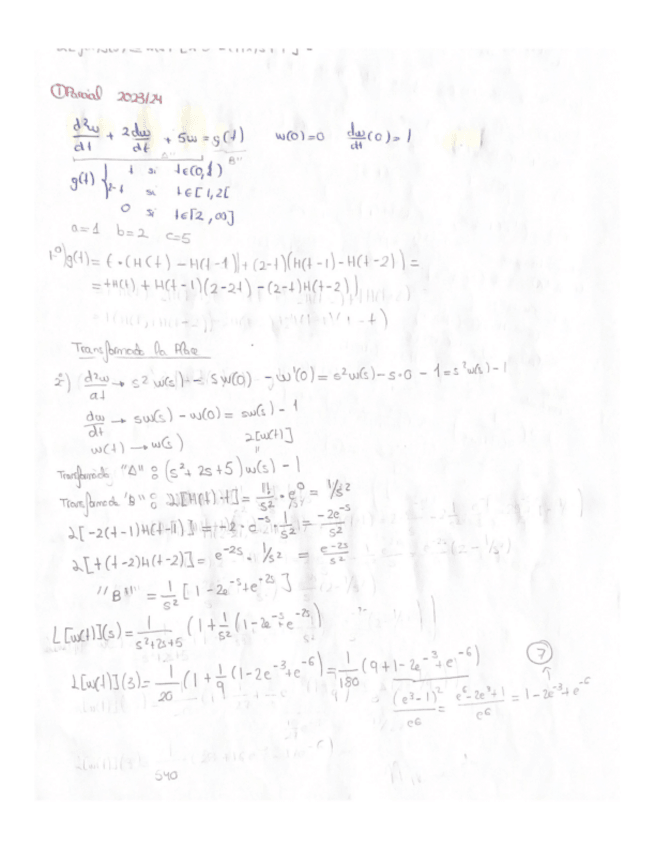 ① Parcial 2023/24
d²w/dt + 2dw/dt + 5w = g(t) w(0)=0 dw/dt(0)=1
"A" "B"
g(t) { t si t∈(0,1)
2-t si t∈[1,2[
0 si t∈[2,∞]
a=1 b=2 c=5
1º) g(t) = t·(H(t) - H(t-1)) + (2-t)(H(t-1) - H(t-2)) =
= tH(t) + H(t-1)(2-2t) - (2-t)H(t-2)
Transformada
2º) d²w/dt → s²w(s) - sw(0) - w'(0) = s²w(s) - s·0 - 1 = s²w(s) - 1
dw/dt → sw(s) - w(0) = sw(s) - 1
w(t) → w(s) 2[w(t)]
"
Transformada "A" : (s² + 2s + 5)w(s) - 1
Transformada "B" : 2[H(t)·t] = 1!/s² · e⁰ = 1/s²
2[-2(t-1)H(t-1)] = -2·e^-s · 1/s² = -2e^-s/s²
2[+(t-2)H(t-2)] = e^-2s · 1/s² = e^-2s/s²
"B" = 1/s² [1 - 2e^-s + e^-2s]
L[w(t)](s) = 1/(s²+2s+5) (1 + 1/s² (1 - 2e^-s + e^-2s))
2[w(t)](3) = 1/20 (1 + 1/9 (1 - 2e^-3 + e^-6)) = 1/180 (9 + 1 - 2e^-3 + e^-6)
⑦
↑
(e³-1)²/e⁶ = (e⁶-2e³+1)/e⁶ = 1 - 2e^-3 + e^-6
540